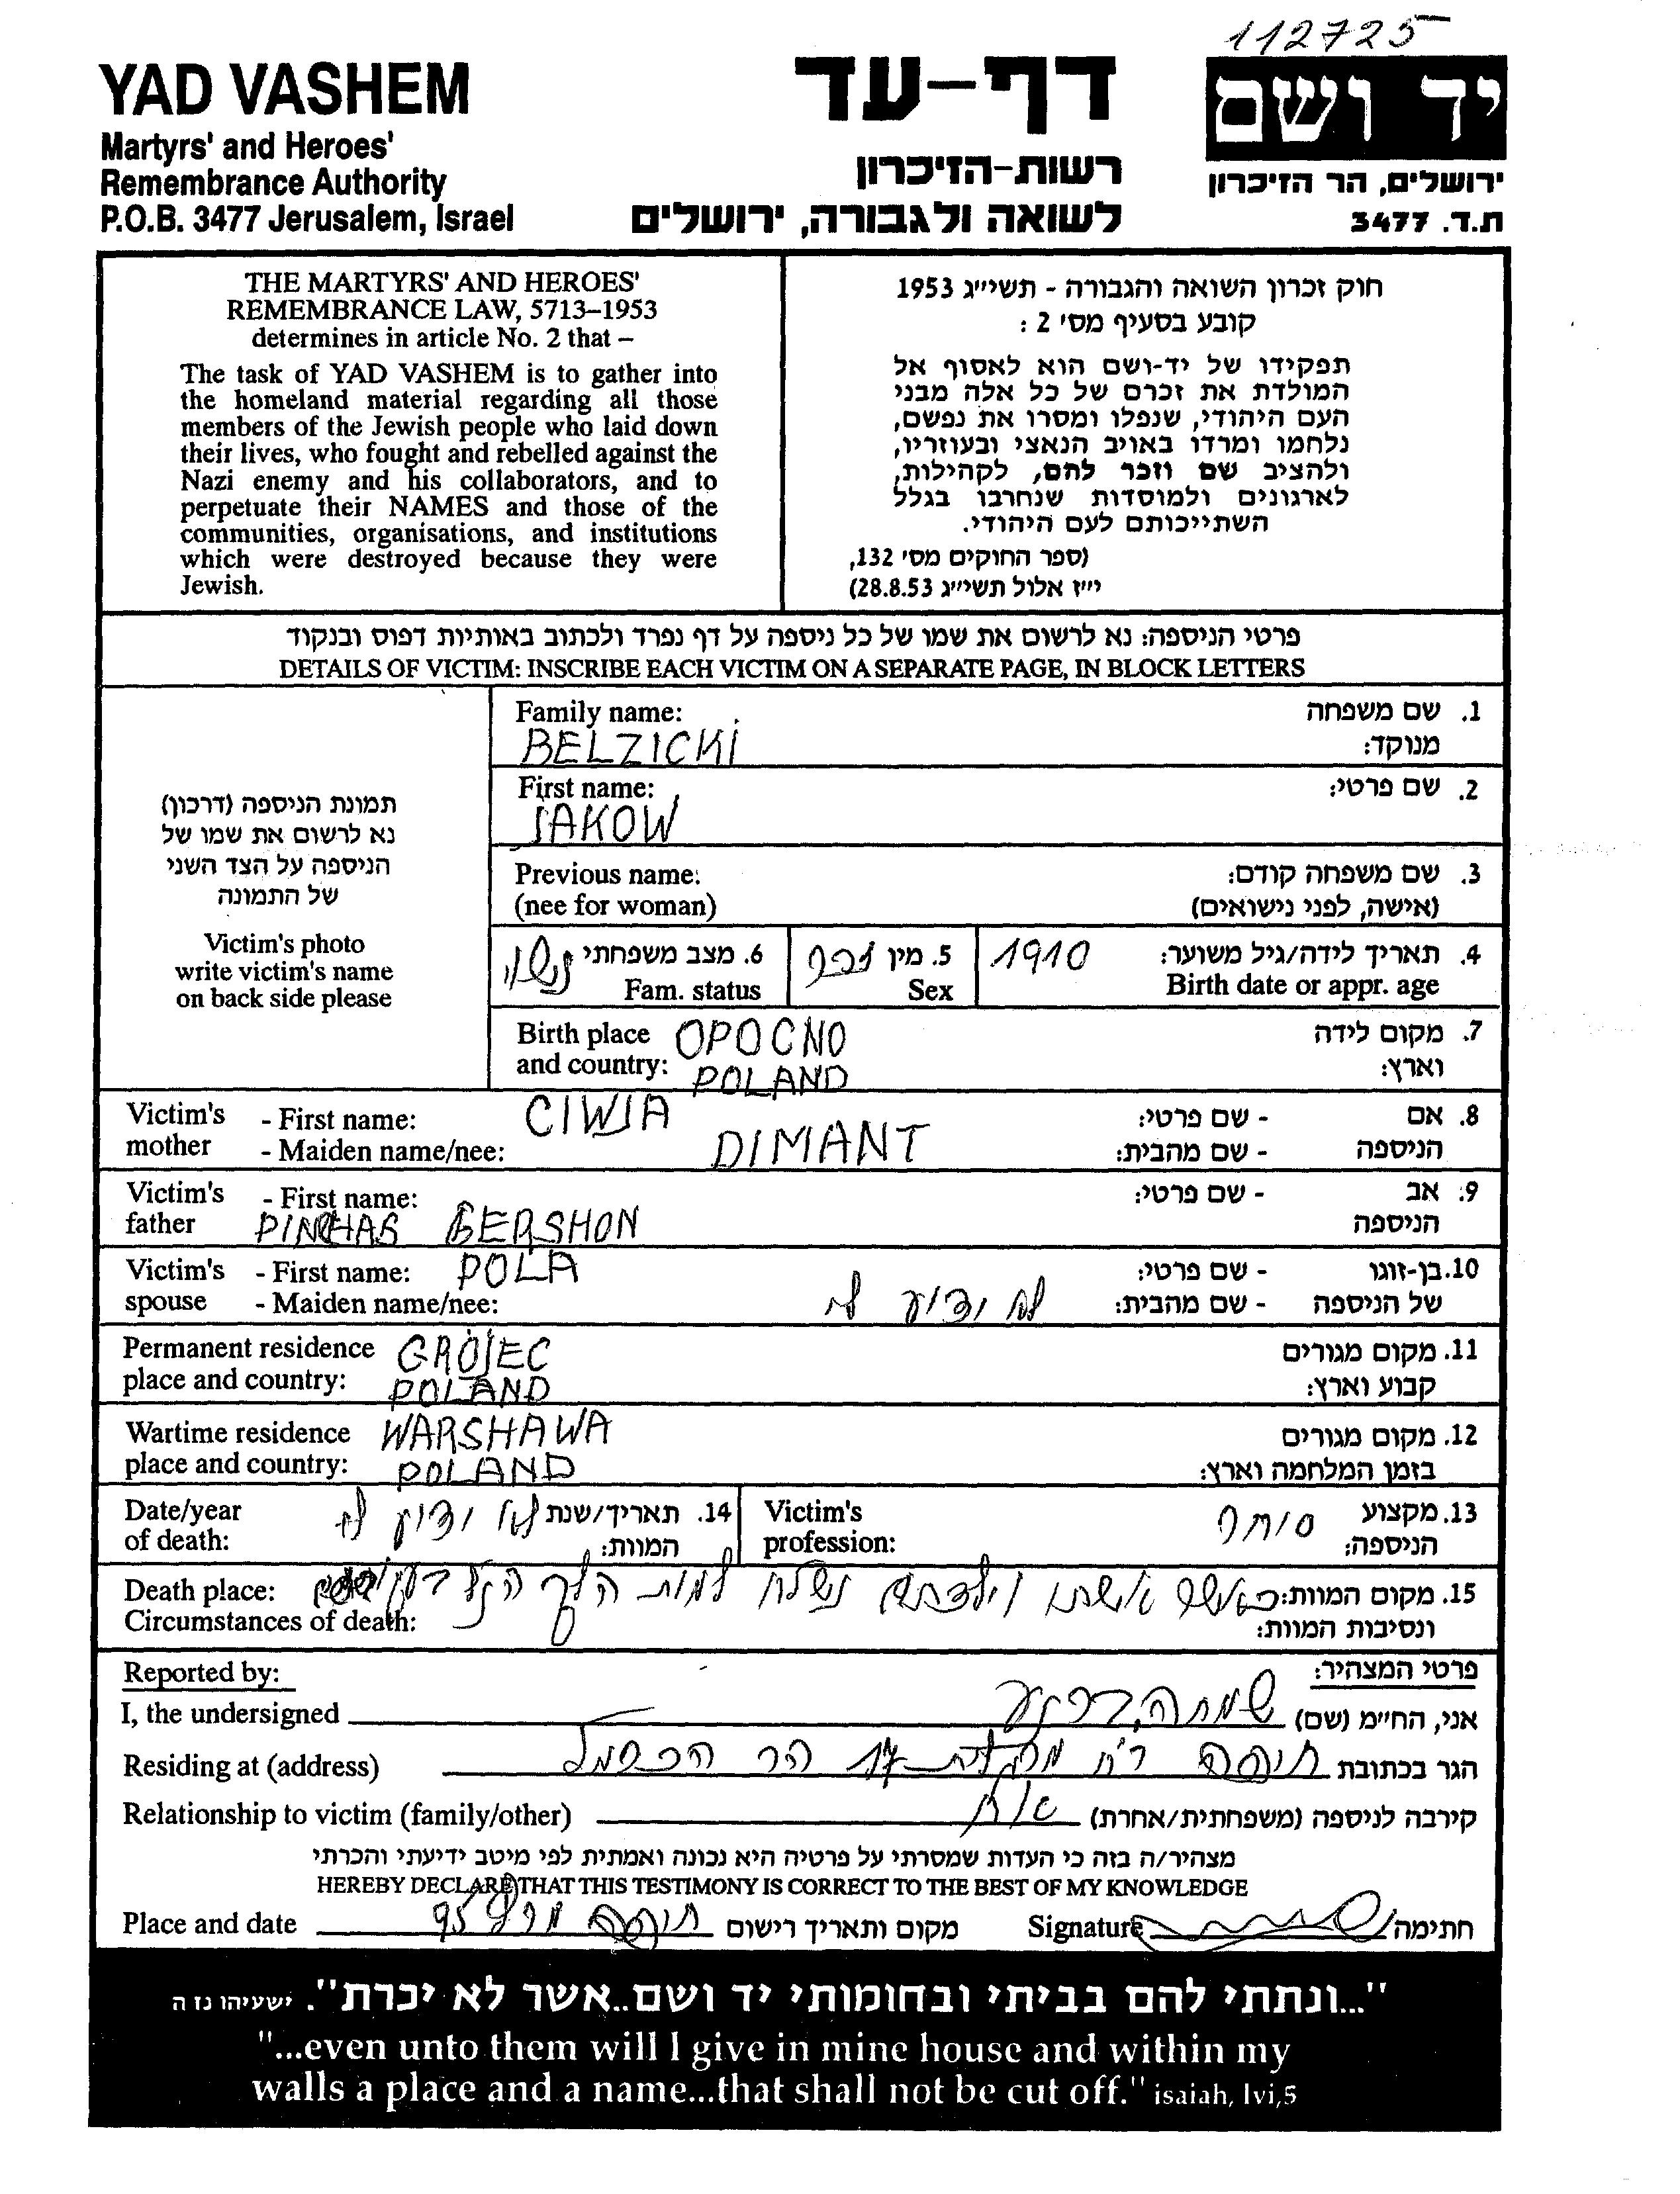 112725
YAD VASHEM
Martyrs' and Heroes'
Remembrance Authority
P.O.B. 3477 Jerusalem, Israel
דף-עד
רשות-הזיכרון
לשואה ולגבורה, ירושלים
יד ושם
ירושלים, הר הזיכרון
ת.ד. 3477
THE MARTYRS' AND HEROES'
REMEMBRANCE LAW, 5713–1953
determines in article No. 2 that –
The task of YAD VASHEM is to gather into
the homeland material regarding all those
members of the Jewish people who laid down
their lives, who fought and rebelled against the
Nazi enemy and his collaborators, and to
perpetuate their NAMES and those of the
communities, organisations, and institutions
which were destroyed because they were
Jewish.
חוק זכרון השואה והגבורה - תשי״ג 1953
קובע בסעיף מס׳ 2 :
תפקידו של יד-ושם הוא לאסוף אל
המולדת את זכרם של כל אלה מבני
העם היהודי, שנפלו ומסרו את נפשם,
נלחמו ומרדו באויב הנאצי ובעוזריו,
ולהציב שם וזכר להם, לקהילות,
לארגונים ולמוסדות שנחרבו בגלל
השתייכותם לעם היהודי.
(ספר החוקים מס׳ 132,
י״ז אלול תשי״ג 28.8.53)
פרטי הניספה: נא לרשום את שמו של כל ניספה על דף נפרד ולכתוב באותיות דפוס ובנקוד
DETAILS OF VICTIM: INSCRIBE EACH VICTIM ON A SEPARATE PAGE, IN BLOCK LETTERS
תמונת הניספה (דרכון)
נא לרשום את שמו של
הניספה על הצד השני
של התמונה
Victim's photo
write victim's name
on back side please
Family name: 1. שם משפחה
BELZICKI מנוקד:
First name: 2. שם פרטי:
JAKOW
Previous name: 3. שם משפחה קודם:
(nee for woman) (אישה, לפני נישואים)
4. תאריך לידה/גיל משוער: 1910 5. מין זכר 6. מצב משפחתי נשוי
Birth date or appr. age Sex Fam. status
Birth place OPOCNO 7. מקום לידה
and country: POLAND וארץ:
Victim's - First name: CIWJA - שם פרטי: 8. אם
mother - Maiden name/nee: DIMANT - שם מהבית: הניספה
Victim's - First name: - שם פרטי: 9. אב
father PINCHAS GERSHON הניספה
Victim's - First name: POLA - שם פרטי: 10. בן-זוגו
spouse - Maiden name/nee: לא ידוע לי - שם מהבית: של הניספה
Permanent residence GRÓJEC 11. מקום מגורים
place and country: POLAND קבוע וארץ:
Wartime residence WARSHAWA 12. מקום מגורים
place and country: POLAND בזמן המלחמה וארץ:
13. מקצוע סוחר Victim's
הניספה: profession:
14. תאריך/שנת לא ידוע לי Date/year
המוות: of death:
Death place: 15. מקום המוות: כאשר אשתו וילדתם נשלח למות הלך הנ״ל
Circumstances of death: ונסיבות המוות:
Reported by: פרטי המצהיר:
I, the undersigned אני, החי״מ (שם) שמחה
Residing at (address) הגר בכתובת חיפה רח הר הכרמל
Relationship to victim (family/other) קירבה לניספה (משפחתית/אחרת) אח
מצהיר/ה בזה כי העדות שמסרתי על פרטיה היא נכונה ואמתית לפי מיטב ידיעתי והכרתי
HEREBY DECLARE THAT THIS TESTIMONY IS CORRECT TO THE BEST OF MY KNOWLEDGE
Place and date מקום ותאריך רישום חיפה מרץ 95 Signature חתימה
"...ונתתי להם בביתי ובחומותי יד ושם..אשר לא יכרת". ישעיהו נו ה
"...even unto them will I give in mine house and within my
walls a place and a name...that shall not be cut off." isaiah, lvi,5